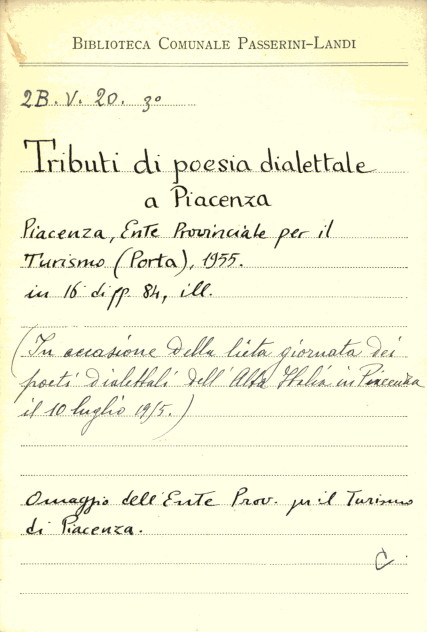 BIBLIOTECA COMUNALE PASSERINI-LANDI
2B. V. 20. 3º
Tributi di poesia dialettale
a Piacenza
Piacenza, Ente Provinciale per il
Turismo (Porta), 1955.
in 16 di pp. 84, ill.
(In occasione della lieta giornata dei
poeti dialettali dell'Alta Italia in Piacenza
il 10 luglio 19/5.)
Omaggio dell'Ente Prov. per il Turismo
di Piacenza.
C.